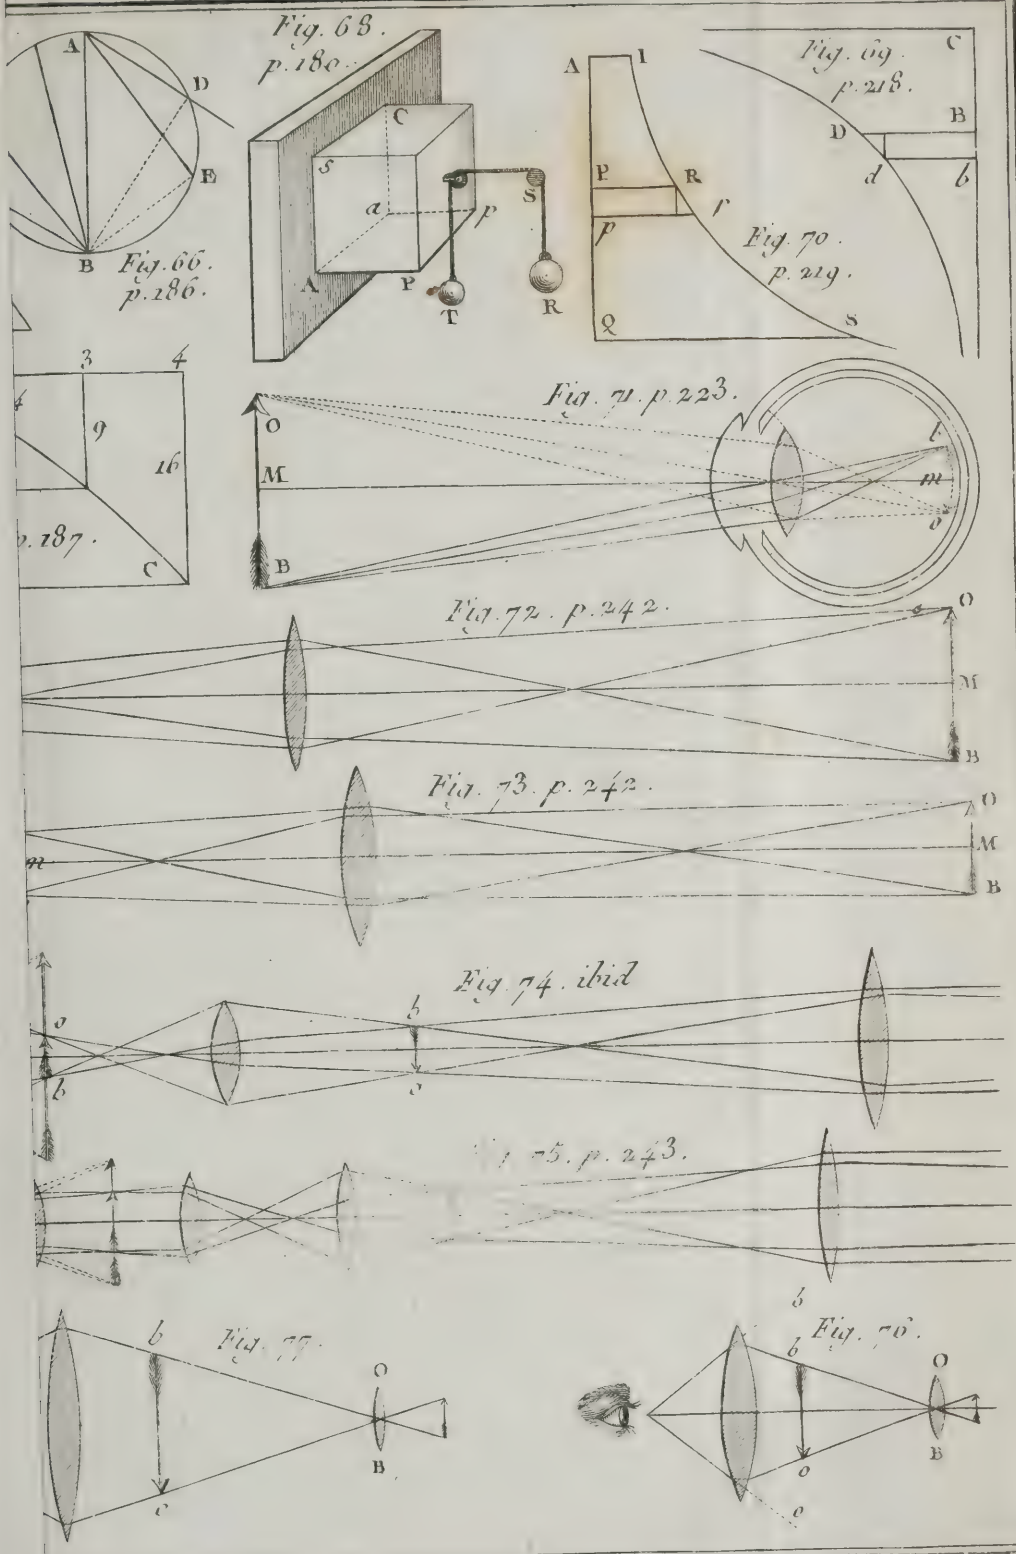 A
D
E
B
Fig. 66.
p. 186.
Fig. 68.
p. 180.
C
s
a
p
A
P
S
T
R
A
I
P
R
p
r
Q
S
Fig. 70.
p. 219.
Fig. 69.
p. 218.
C
D
B
d
b
3
4
4
9
16
p. 187.
C
Fig. 71. p. 223.
O
M
B
m
o
Fig. 72. p. 242.
O
M
B
Fig. 73. p. 242.
m
O
M
B
Fig. 74. ibid
o
b
b
o
75. p. 243.
Fig. 77.
b
o
O
B
Fig. 76.
b
b
o
o
O
B